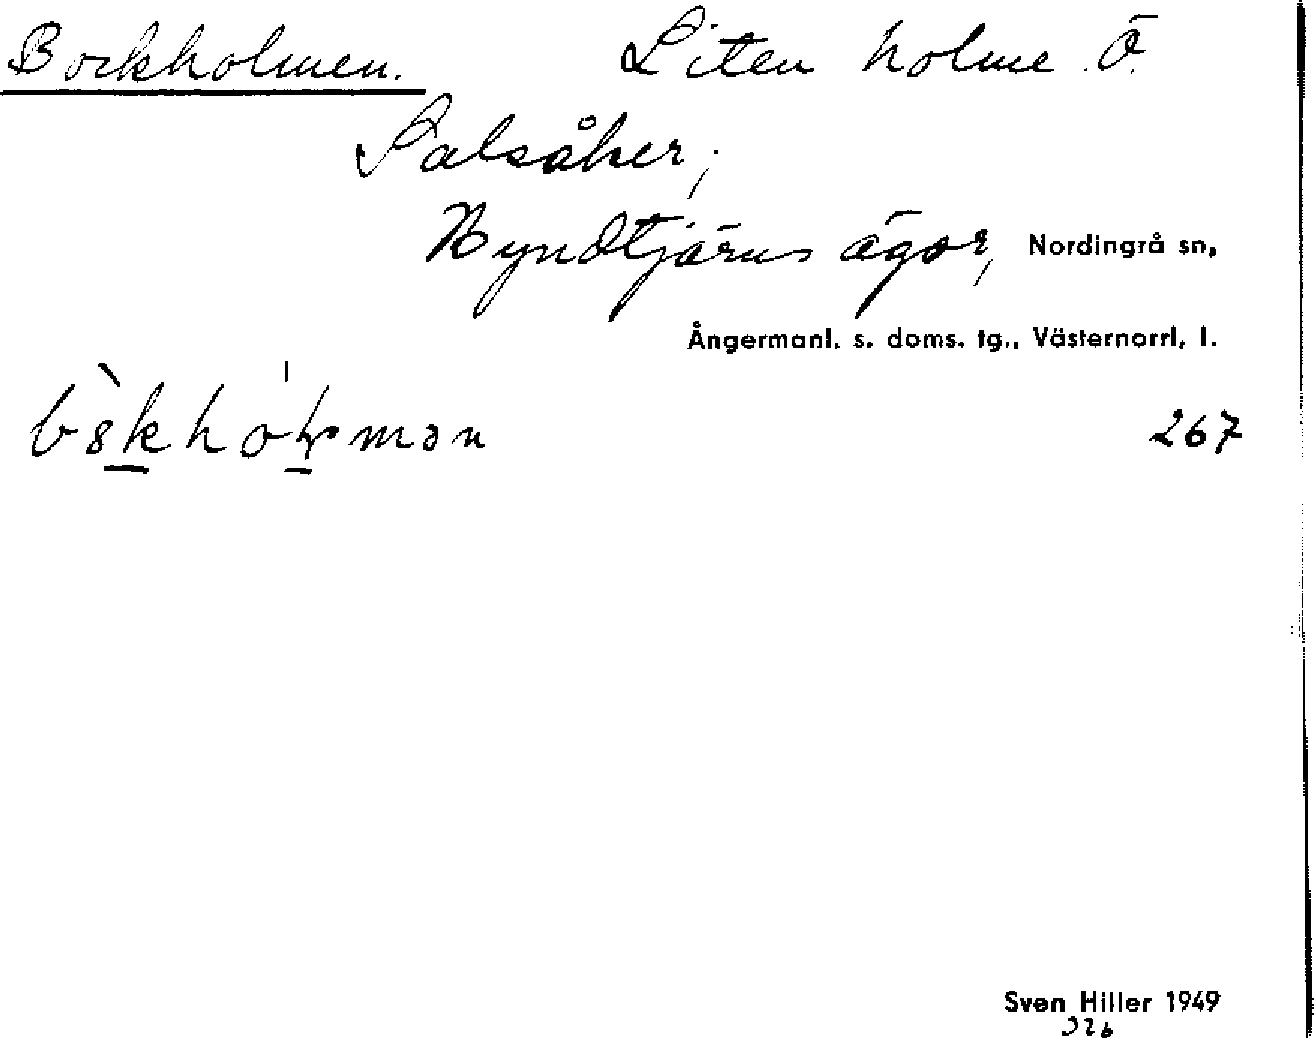 Bockholmen. Liten holme Ö.
Salsåker,
Kyndtjärns ägor, Nordingrå sn,
Ångermanl. s. doms. tg., Västernorrl. l.
267
Sven Hiller 1949
326